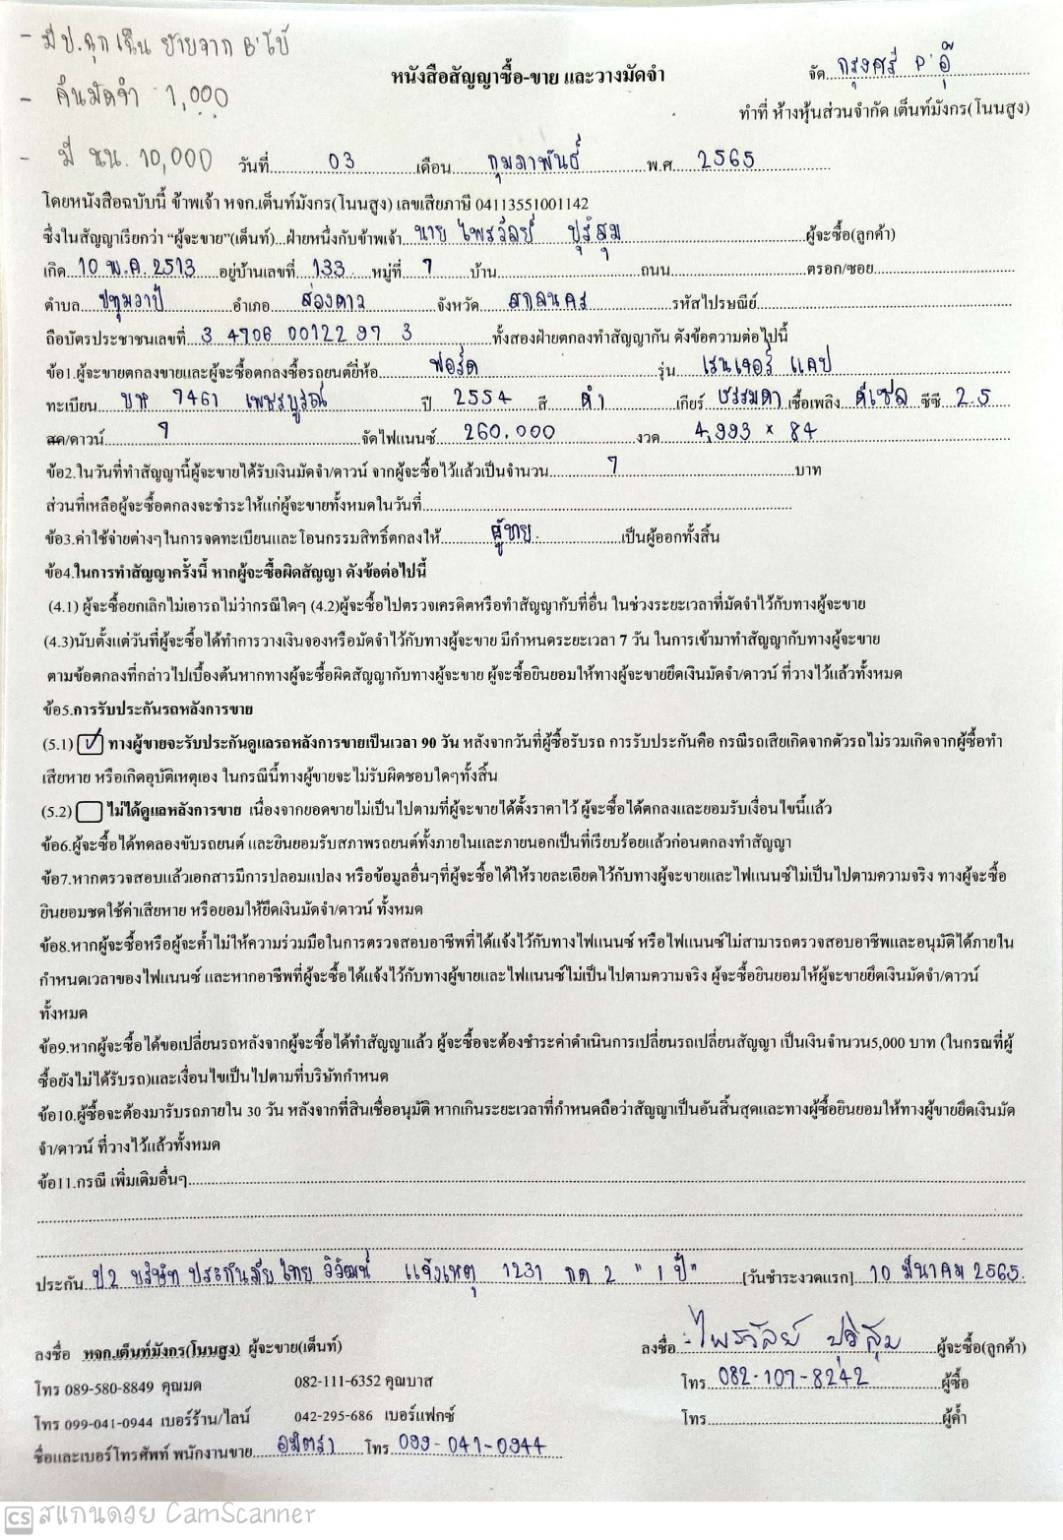 - มี ป.ฉุกเฉิน ย้ายจาก B'โบ้
- คืนมัดจำ 1,000
หนังสือสัญญาซื้อ-ขาย และวางมัดจำ
จัด กรุงศรี P'อุ๊
ทำที่ ห้างหุ้นส่วนจำกัด เต็นท์มังกร(โนนสูง)
- มี ชน. 10,000
วันที่ 03 เดือน กุมภาพันธ์ พ.ศ. 2565
โดยหนังสือฉบับนี้ ข้าพเจ้า หจก.เต็นท์มังกร(โนนสูง) เลขเสียภาษี 04113551001142
ซึ่งในสัญญาเรียกว่า “ผู้จะขาย”(เต็นท์)...ฝ่ายหนึ่งกับข้าพเจ้า นาย ไพรวัลย์ ปุริสุม ผู้จะซื้อ(ลูกค้า)
เกิด 10 พ.ค. 2513 อยู่บ้านเลขที่ 133 หมู่ที่ 7 บ้าน ถนน ตรอก/ซอย
ตำบล ปทุมวาปี อำเภอ ส่องดาว จังหวัด สกลนคร รหัสไปรษณีย์
ถือบัตรประชาชนเลขที่ 3 4706 00122 97 3 ทั้งสองฝ่ายตกลงทำสัญญากัน ดังข้อความต่อไปนี้
ข้อ1.ผู้จะขายตกลงขายและผู้จะซื้อตกลงซื้อรถยนต์ยี่ห้อ ฟอร์ด รุ่น เรนเจอร์ แคป
ทะเบียน บห 7461 เพชรบูรณ์ ปี 2554 สี ดำ เกียร์ ธรรมดา เชื้อเพลิง ดีเซล ซีซี 2.5
สด/ดาวน์ 7 จัดไฟแนนซ์ 260,000 งวด 4,993 × 84
ข้อ2.ในวันที่ทำสัญญานี้ผู้จะขายได้รับเงินมัดจำ/ดาวน์ จากผู้จะซื้อไว้แล้วเป็นจำนวน 7 บาท
ส่วนที่เหลือผู้จะซื้อตกลงจะชำระให้แก่ผู้จะขายทั้งหมดในวันที่
ข้อ3.ค่าใช้จ่ายต่างๆในการจดทะเบียนและโอนกรรมสิทธิ์ตกลงให้ ผู้ขาย เป็นผู้ออกทั้งสิ้น
ข้อ4.ในการทำสัญญาครั้งนี้ หากผู้จะซื้อผิดสัญญา ดังข้อต่อไปนี้
(4.1) ผู้จะซื้อยกเลิกไม่เอารถไม่ว่ากรณีใดๆ (4.2)ผู้จะซื้อไปตรวจเครดิตหรือทำสัญญากับที่อื่น ในช่วงระยะเวลาที่มัดจำไว้กับทางผู้จะขาย
(4.3)นับตั้งแต่วันที่ผู้จะซื้อได้ทำการวางเงินจองหรือมัดจำ ไว้กับทางผู้จะขาย มีกำหนดระยะเวลา 7 วัน ในการเข้ามาทำสัญญากับทางผู้จะขาย
ตามข้อตกลงที่กล่าวไปเบื้องต้นหากทางผู้จะซื้อผิดสัญญากับทางผู้จะขาย ผู้จะซื้อยินยอมให้ทางผู้จะขายยึดเงินมัดจำ/ดาวน์ ที่วางไว้แล้วทั้งหมด
ข้อ5.การรับประกันรถหลังการขาย
(5.1) ✓ ทางผู้ขายจะรับประกันดูแลรถหลังการขายเป็นเวลา 90 วัน หลังจากวันที่ผู้ซื้อรับรถ การรับประกันคือ กรณีรถเสียเกิดจากตัวรถ ไม่รวมเกิดจากผู้ซื้อทำ
เสียหาย หรือเกิดอุบัติเหตุเอง ในกรณีนี้ทางผู้ขายจะไม่รับผิดชอบใดๆทั้งสิ้น
(5.2) ไม่ได้ดูแลหลังการขาย เนื่องจากยอดขายไม่เป็นไปตามที่ผู้จะขายได้ตั้งราคาไว้ ผู้จะซื้อได้ตกลงและยอมรับเงื่อนไขนี้แล้ว
ข้อ6.ผู้จะซื้อได้ทดลองขับรถยนต์ และยินยอมรับสภาพรถยนต์ทั้งภายในและภายนอกเป็นที่เรียบร้อยแล้วก่อนตกลงทำสัญญา
ข้อ7.หากตรวจสอบแล้วเอกสารมีการปลอมแปลง หรือข้อมูลอื่นๆที่ผู้จะซื้อได้ให้รายละเอียดไว้กับทางผู้จะขายและไฟแนนซ์ไม่เป็นไปตามความจริง ทางผู้จะซื้อ
ยินยอมชดใช้ค่าเสียหาย หรือยอมให้ยึดเงินมัดจำ/ดาวน์ ทั้งหมด
ข้อ8.หากผู้จะซื้อหรือผู้จะค้ำไม่ให้ความร่วมมือในการตรวจสอบอาชีพที่ได้แจ้งไว้กับทางไฟแนนซ์ หรือไฟแนนซ์ไม่สามารถตรวจสอบอาชีพและอนุมัติได้ภายใน
กำหนดเวลาของไฟแนนซ์ และหากอาชีพที่ผู้จะซื้อได้แจ้งไว้กับทางผู้ขายและไฟแนนซ์ไม่เป็นไปตามความจริง ผู้จะซื้อยินยอมให้ผู้จะขายยึดเงินมัดจำ/ดาวน์
ทั้งหมด
ข้อ9.หากผู้จะซื้อได้ขอเปลี่ยนรถหลังจากผู้จะซื้อได้ทำสัญญาแล้ว ผู้จะซื้อจะต้องชำระค่าดำเนินการเปลี่ยนรถเปลี่ยนสัญญา เป็นเงินจำนวน5,000 บาท (ในกรณที่ผู้
ซื้อยังไม่ได้รับรถ)และเงื่อนไขเป็นไปตามที่บริษัทกำหนด
ข้อ10.ผู้ซื้อจะต้องมารับรถภายใน 30 วัน หลังจากที่สินเชื่ออนุมัติ หากเกินระยะเวลาที่กำหนดถือว่าสัญญาเป็นอันสิ้นสุดและทางผู้ซื้อยินยอมให้ทางผู้ขายยึดเงินมัด
จำ/ดาวน์ ที่วางไว้แล้วทั้งหมด
ข้อ11.กรณี เพิ่มเติมอื่นๆ
ประกัน ป2 บริษัท ประกันภัย ไทย วิวัฒน์ แจ้งเหตุ 1231 กด 2 " 1 ปี" [วันชำระงวดแรก] 10 มีนาคม 2565
ลงชื่อ หจก.เต็นท์มังกร(โนนสูง) ผู้จะขาย(เต็นท์) ลงชื่อ ไพรวัลย์ ปุริสุม ผู้จะซื้อ(ลูกค้า)
โทร 089-580-8849 คุณมด 082-111-6352 คุณบาส โทร 082-107-8242 ผู้ซื้อ
โทร 099-041-0944 เบอร์ร้าน/ไลน์ 042-295-686 เบอร์แฟกซ์ โทร ผู้ค้ำ
ชื่อและเบอร์โทรศัพท์ พนักงานขาย อมิตรา โทร 099-041-0944
CS สแกนด้วย CamScanner